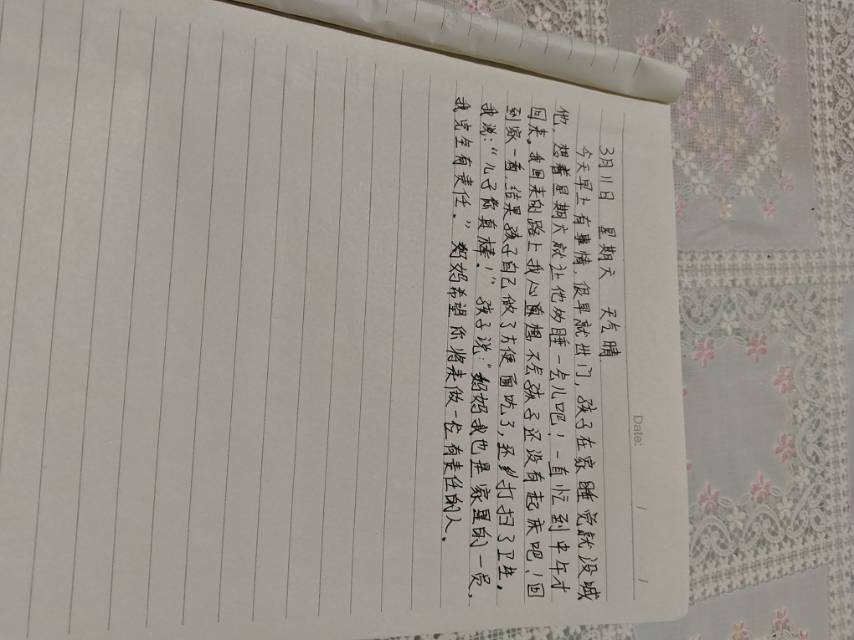 Date: / /
3月11日 星期天 天气晴
今天早上有事情,很早就出门,孩子在家睡觉就没喊
他,想着星期天就让他多睡一会儿吧!一直忙到中午才
回来。我回来的路上我心里想,不会孩子还没有起床吧!回
到家一看,结果孩子自己做了方便面吃了,还打扫了卫生。
我说:“儿子你真棒!”孩子说:“妈妈我也是家里的一员,
我完全有责任。”妈妈希望你将来做一位有责任的人。